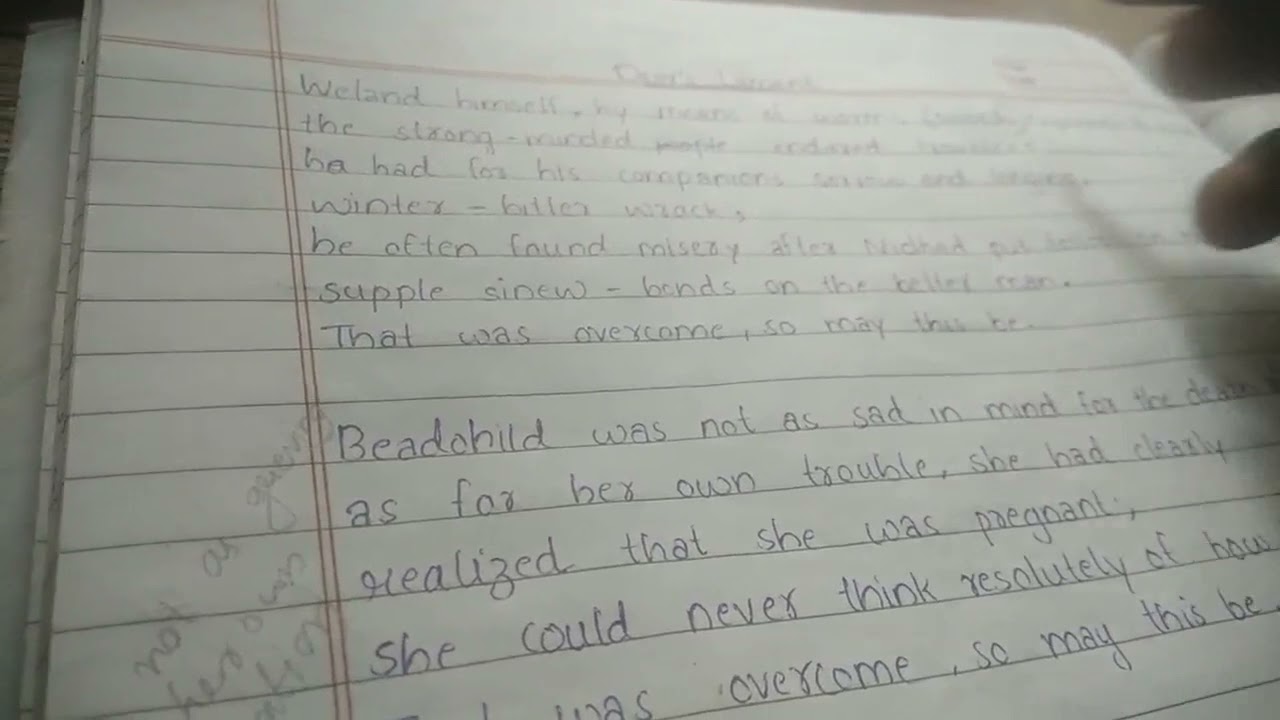 Deor's Lament
Weland himself, by means of worms
the strong-minded people endured
he had for his companions sorrow and
winter - bitter wrack,
he often found misery after Nidhad put
supple sinew - bonds on the better man.
That was overcome, so may this be.
Beadohild was not as sad in mind for the death
as for her own trouble, she had clearly
realized that she was pregnant;
she could never think resolutely of how
was overcome, so may this be
not as
her own